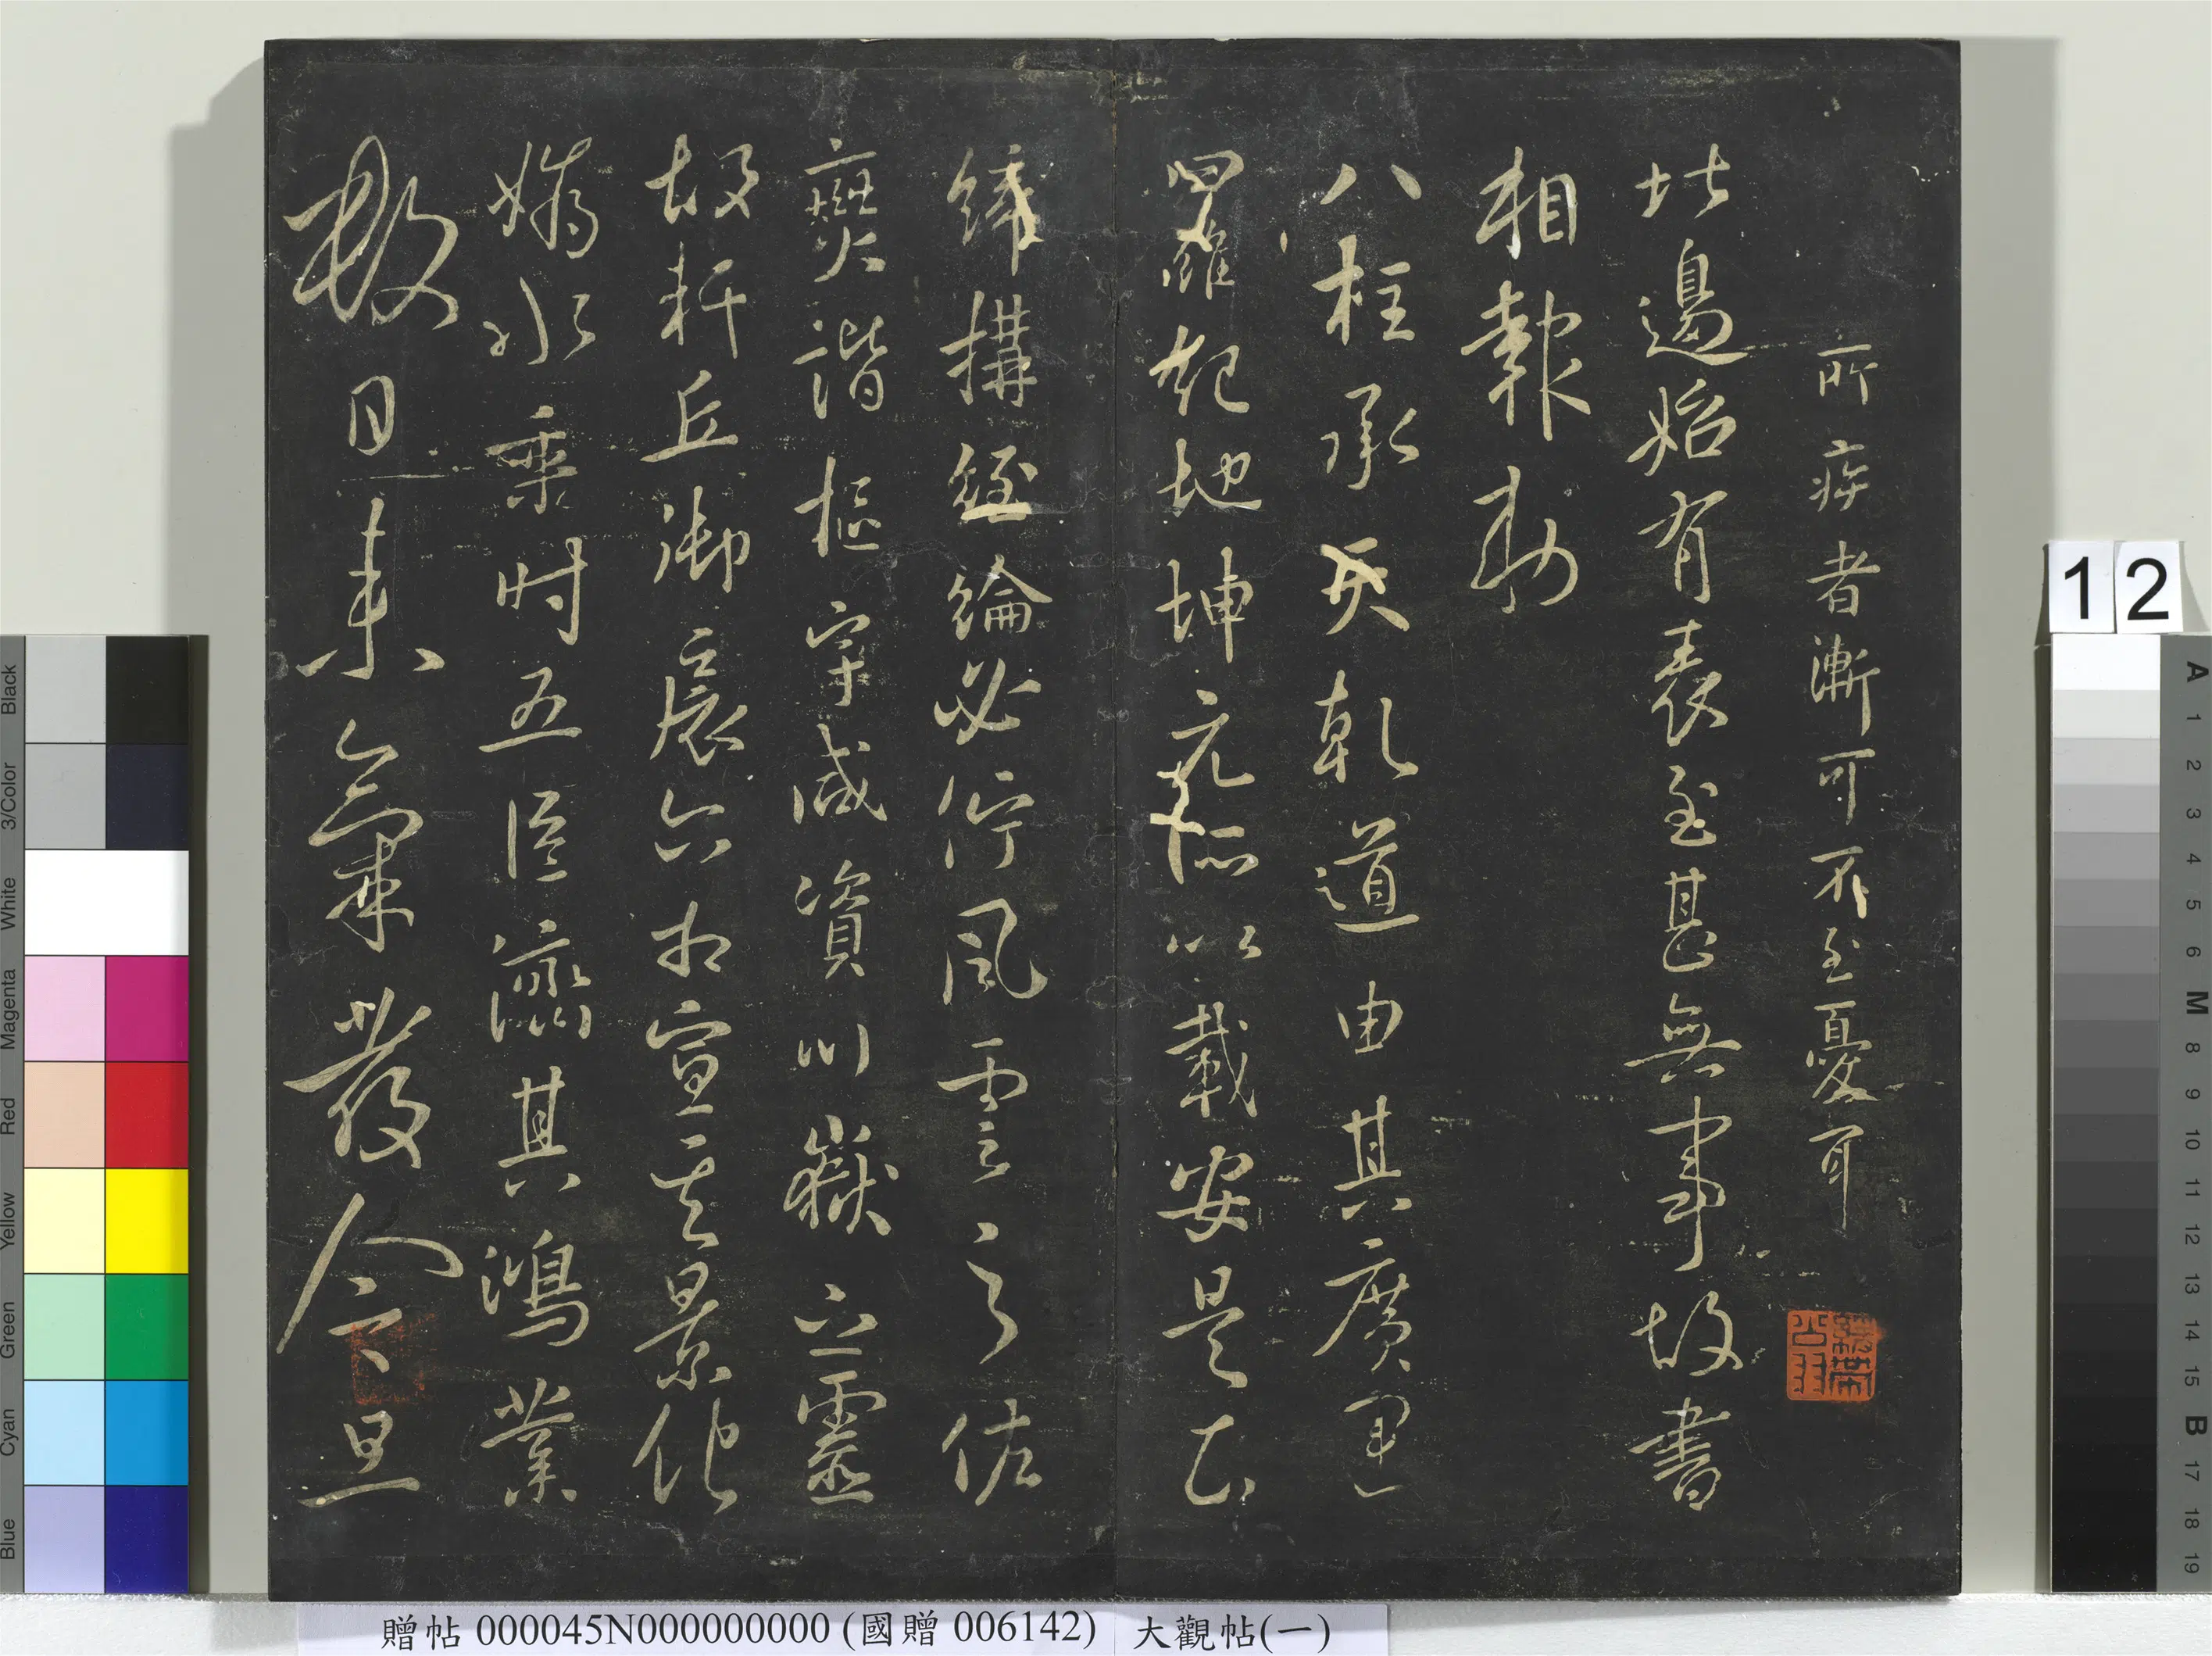 所疾者漸可不至憂耳
北邊始有表至甚無事故書
相報勅
八柱承天乾道由其廣運
四維紀地坤元所以載安是知
締構經綸必佇風雲之佐
燮諧樞宰咸資川嶽之靈
故軒丘御宸六相宣其景化
嬀水乘時五臣濟其鴻業
數日來氣發令旦
12
贈帖 000045N000000000 (國贈 006142) 大觀帖(一)
Black
3/Color
White
Magenta
Red
Yellow
Green
Cyan
Blue
A
1
2
3
4
5
6
M
8
9
10
11
12
13
14
15
B
17
18
19